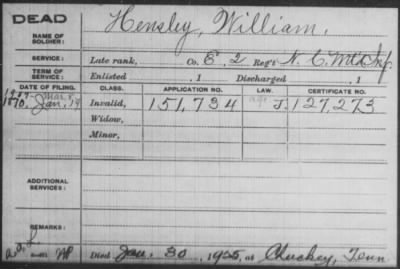 DEAD
NAME OF SOLDIER: Hensley, William,
SERVICE: Late rank, Co. E, 2 Reg't N. C. Mtd. Inf.
TERM OF SERVICE: Enlisted , 1 Discharged , 1
DATE OF FILING. CLASS. APPLICATION NO. LAW. CERTIFICATE NO.
Jan. 19 Invalid, 151,734 J. 127,273
Widow,
Minor,
ADDITIONAL SERVICES:
REMARKS:
Died Jan. 30, 1925, at Chuckey, Tenn